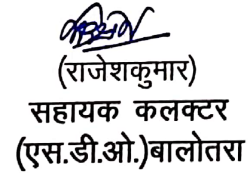 (राजेशकुमार)
सहायक कलक्टर
(एस.डी.ओ.)बालोतरा